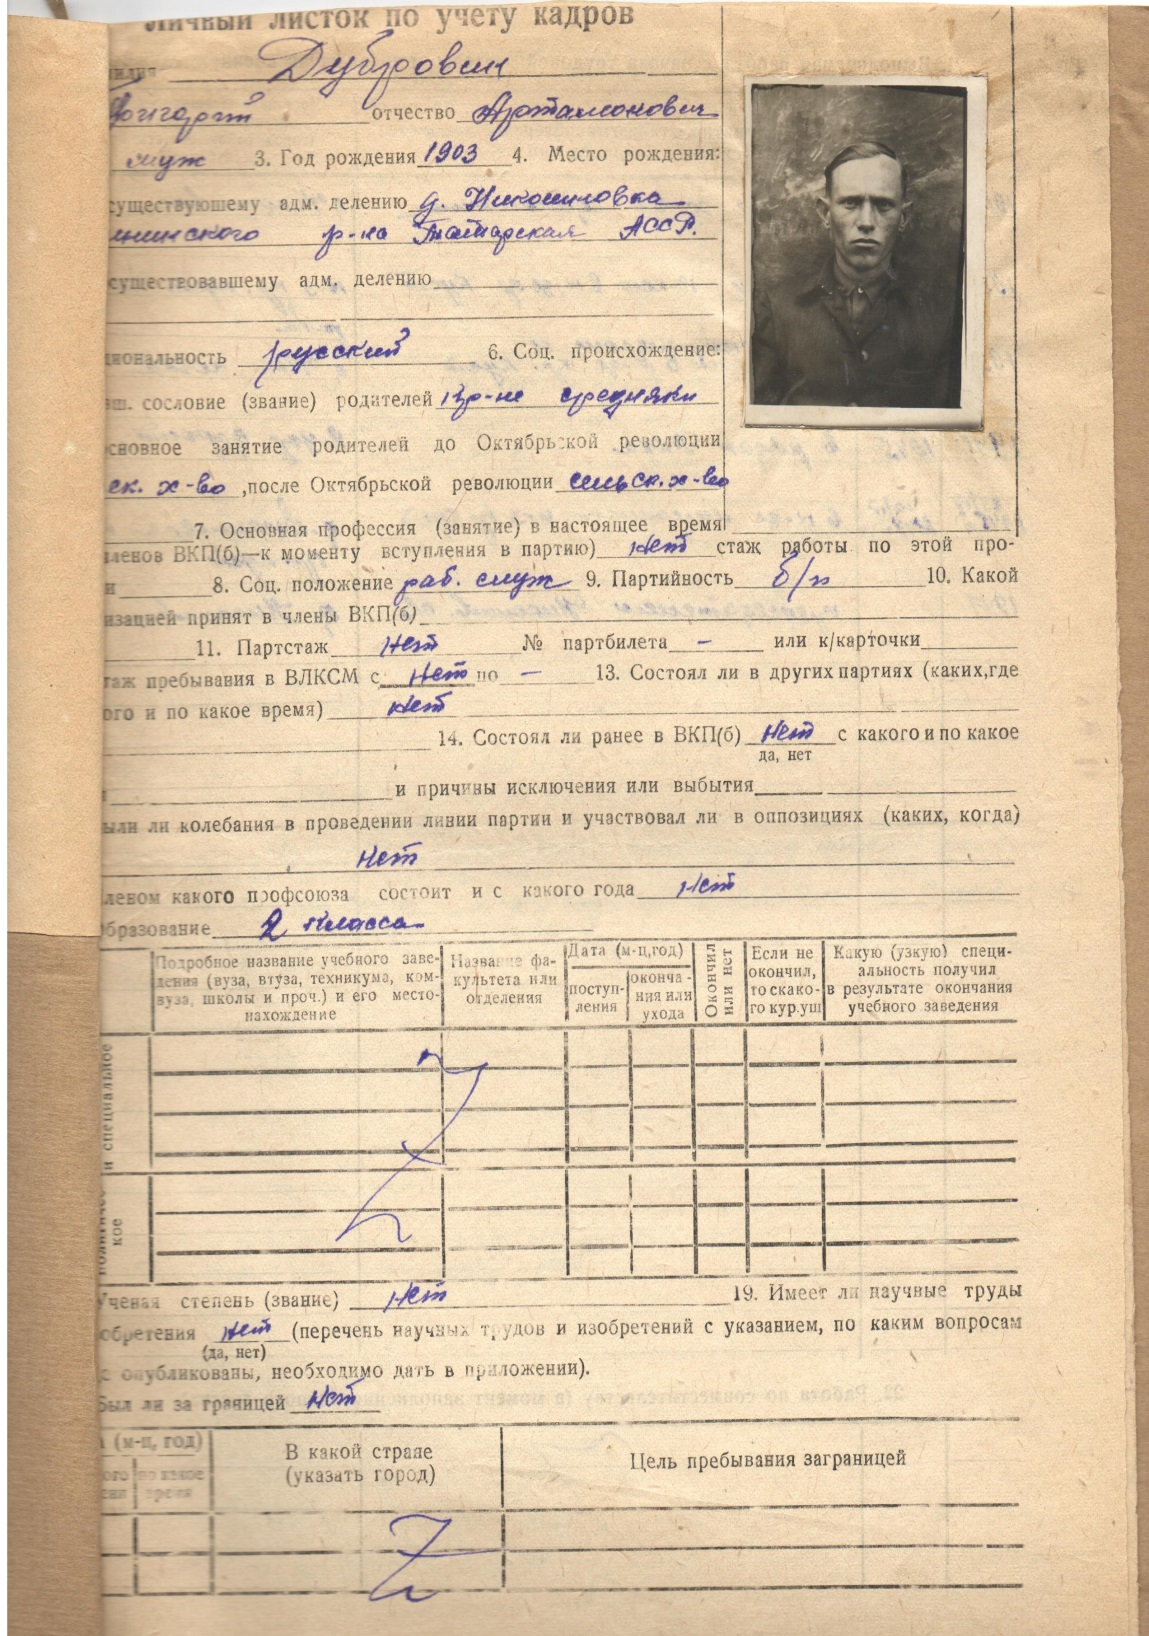 Личный листок по учету кадров
Дубровин
Григорий отчество Артамонович
муж 3. Год рождения 1903 4. Место рождения:
существующему адм. делению д. Николиновка
р-на Татарская АССР.
существовавшему адм. делению
русский 6. Соц. происхождение:
сословие (звание) родителей кр-не средняки
занятие родителей до Октябрьской революции
ск. х-во, после Октябрьской революции сельск. х-во
7. Основная профессия (занятие) в настоящее время
членов ВКП(б)—к моменту вступления в партию) нет стаж работы по этой про-
и 8. Соц. положение раб. служ 9. Партийность б/п 10. Какой
изацией принят в члены ВКП(б)
11. Партстаж нет № партбилета — или к/карточки
таж пребывания в ВЛКСМ с нет по — 13. Состоял ли в других партиях (каких, где
ого и по какое время) нет
14. Состоял ли ранее в ВКП(б) нет с какого и по какое
да, нет
и причины исключения или выбытия
ыли ли колебания в проведении линии партии и участвовал ли в оппозициях (каких, когда)
нет
леном какого профсоюза состоит и с какого года нет
бразование 2 класса
Подробное название учебного заве-
дения (вуза, втуза, техникума, ком-
вуза, школы и проч.) и его место-
нахождение
Название фа-
культета или
отделения
Дата (м-ц, год)
поступ-
ления
оконча-
ния или
ухода
Окончил
или нет
Если не
окончил,
то скако-
го кур. уш
Какую (узкую) специ-
альность получил
в результате окончания
учебного заведения
и специальное
кое
Ученая степень (звание) нет 19. Имеет ли научные труды
обретения нет (перечень научных трудов и изобретений с указанием, по каким вопросам
(да, нет)
опубликованы, необходимо дать в приложении).
Был ли за границей нет
(м-ц, год)
ого
по какое
время
В какой стране
(указать город)
Цель пребывания заграницей